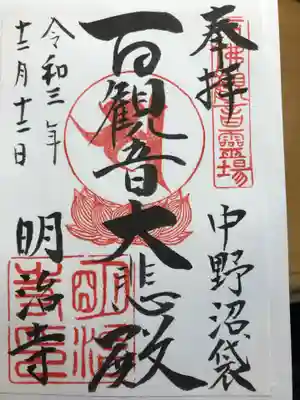 奉拝
觀音靈場
中野沼袋
百観音大悲殿
令和三年
十二月十二日
明治寺